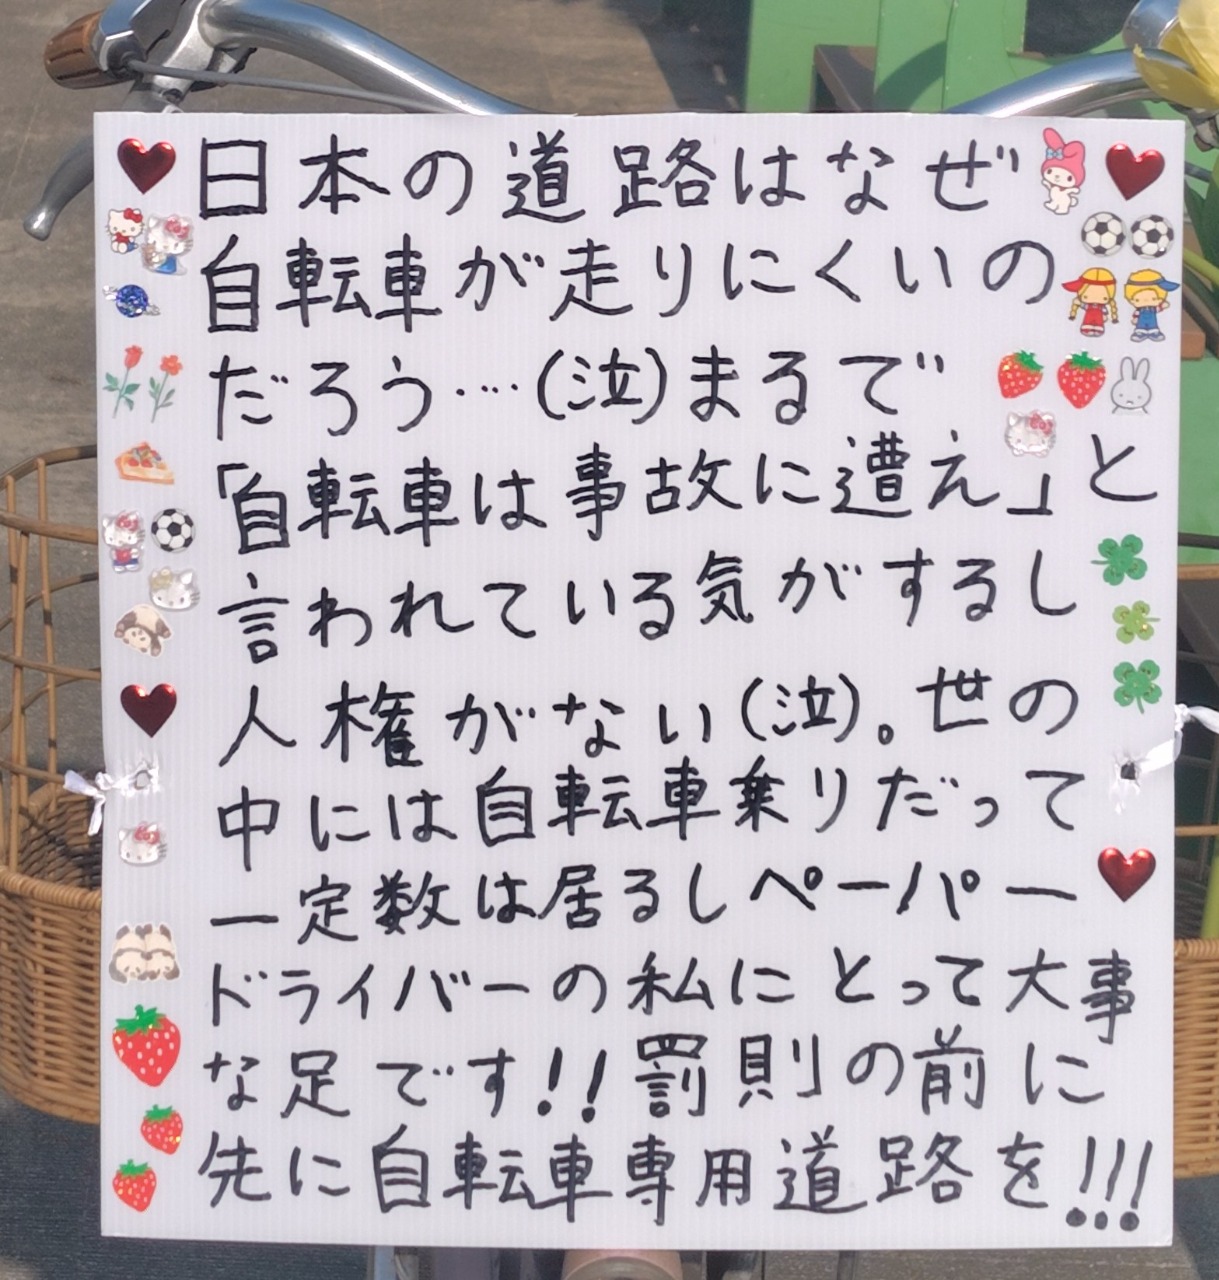 日本の道路はなぜ
自転車が走りにくいの
だろう……(泣)まるで
「自転車は事故に遭え」と
言われている気がするし
人権がない(泣)。世の
中には自転車乗りだって
一定数は居るしペーパー
ドライバーの私にとって大事
な足です!!罰則の前に
先に自転車専用道路を!!!